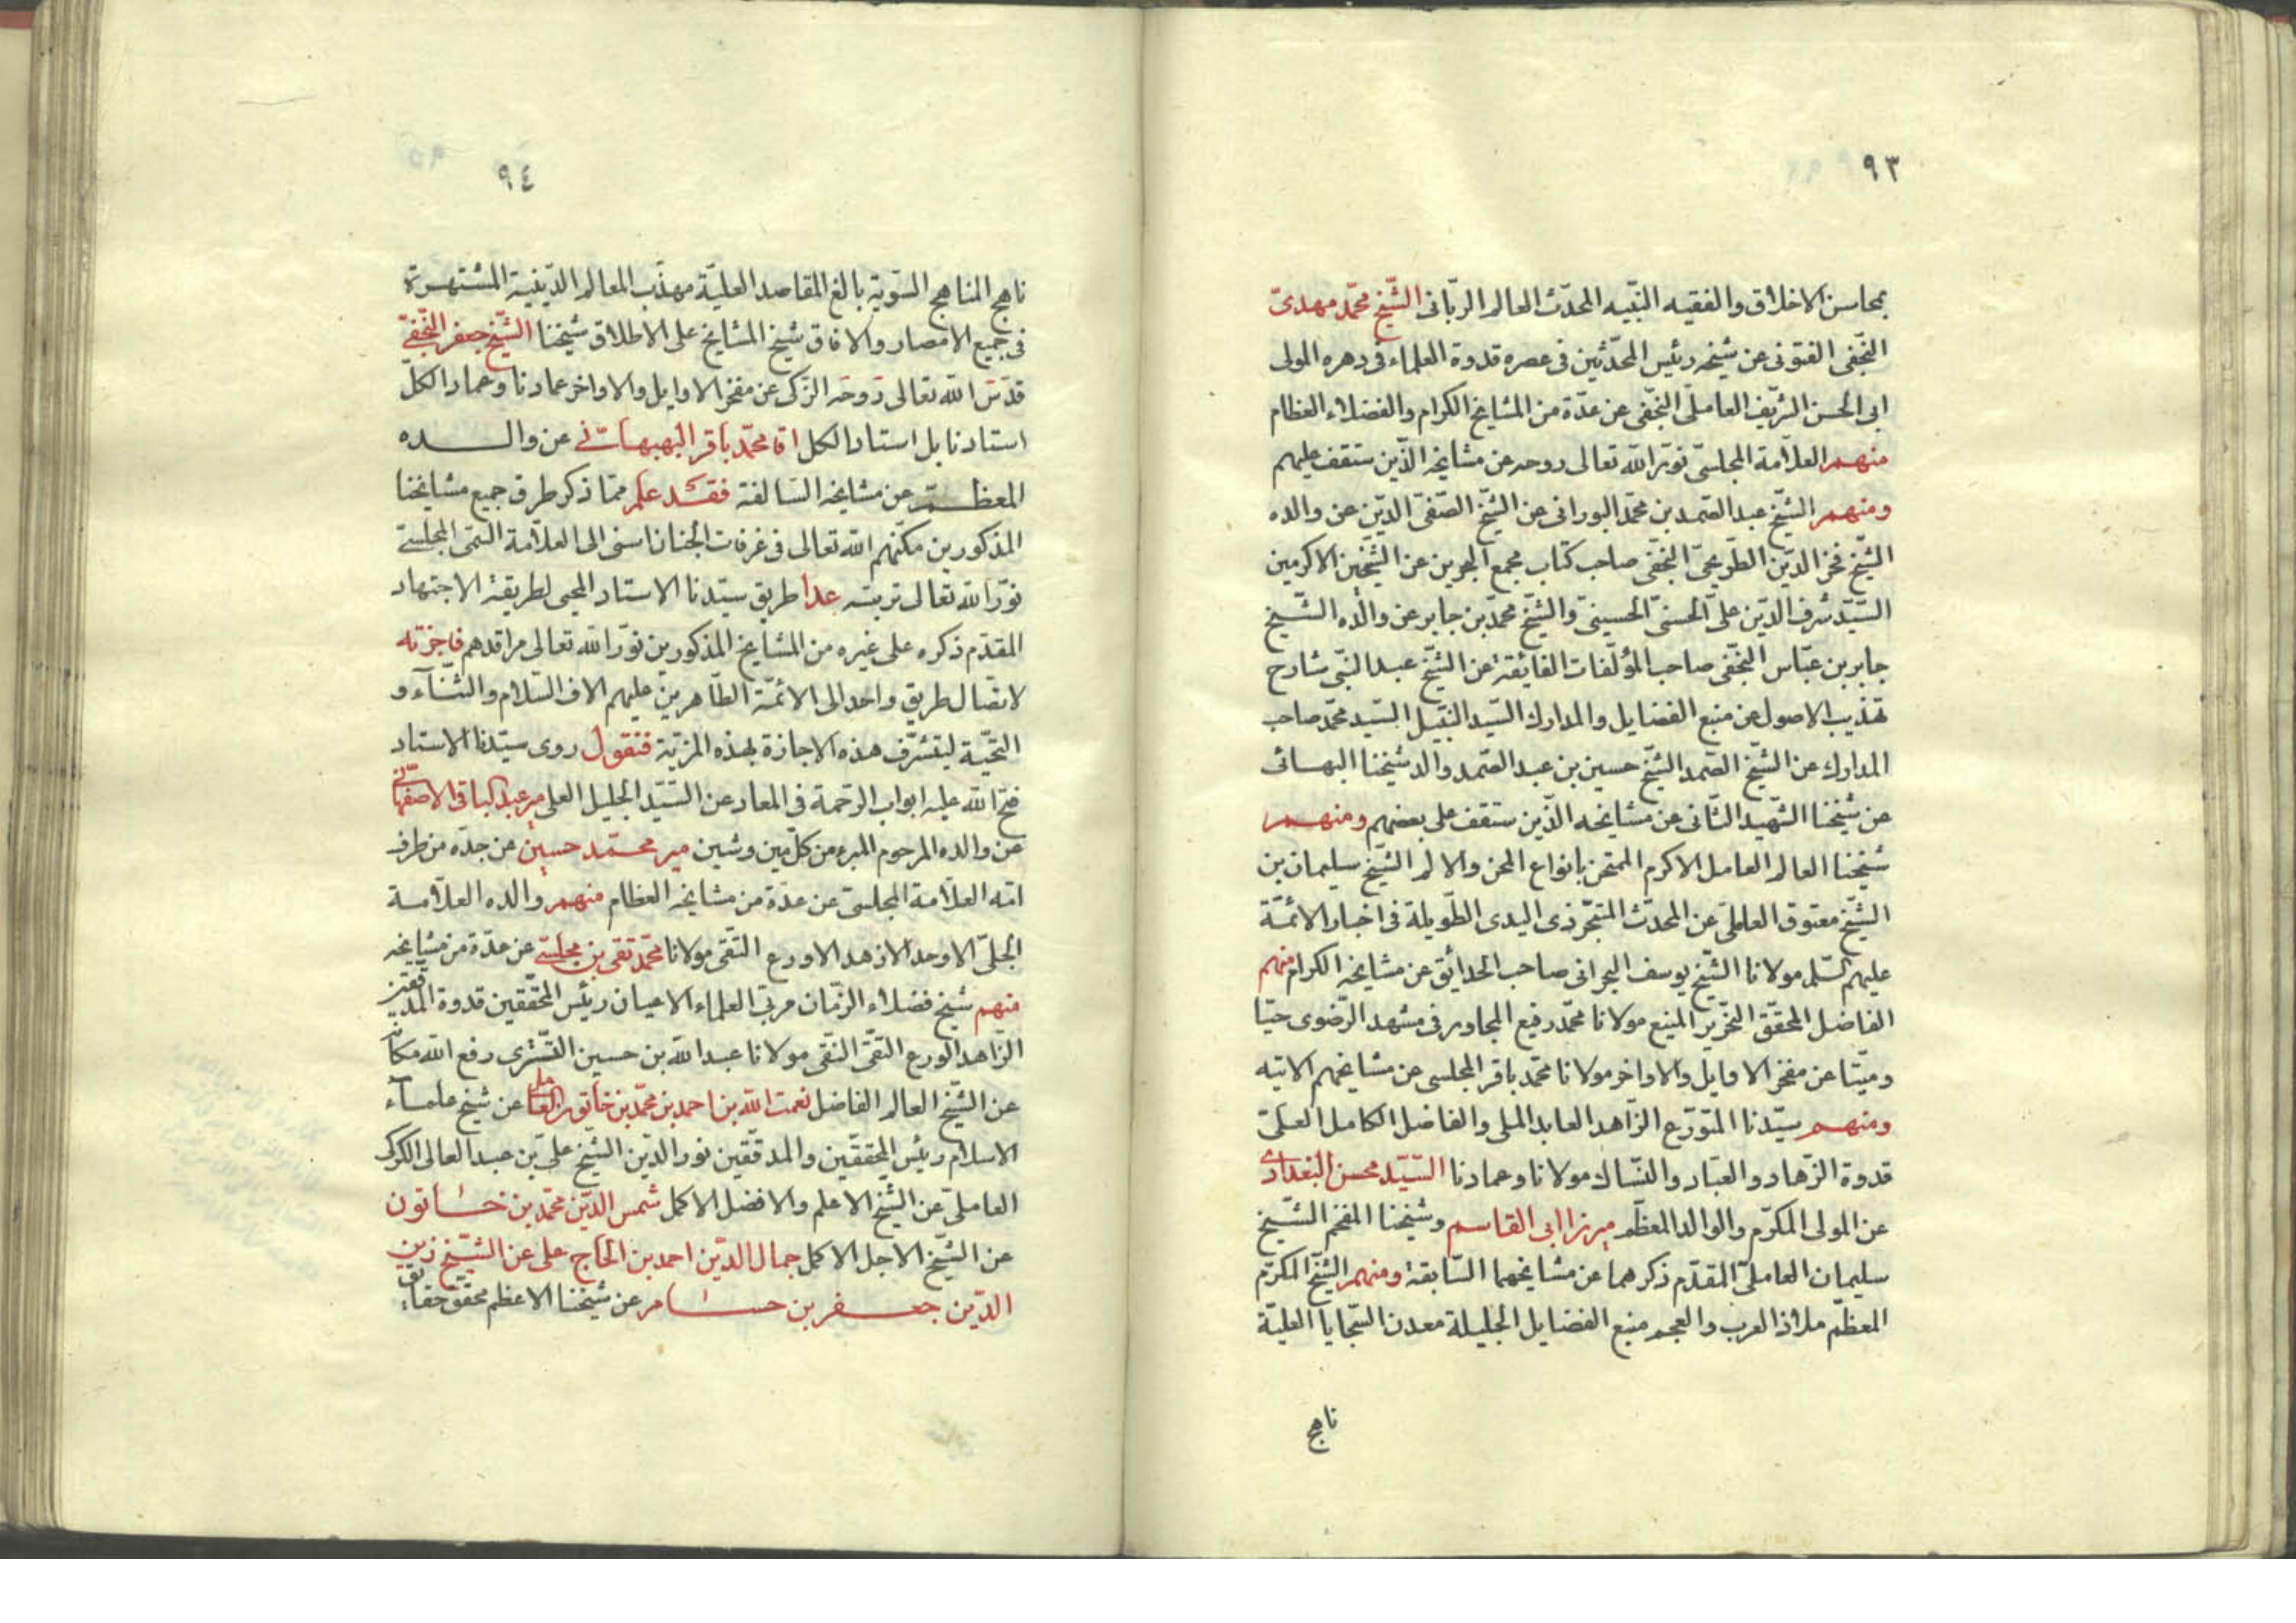 ٩٣
بمحاسن الاخلاق والفقيه النّبيه المحدّث العالم الربّانى الشّيخ محمّد مهدىّ
النّجفى الفتونى عن شيخه رئيس المحدّثين فى عصره قدوة العلماء فى دهره المولى
ابى الحسن الشّريف العاملّى النّجفى عن عدّة من المشايخ الكرام والفضلاء العظام
منهم العلاّمة المجلسىّ نوّر اللّه تعالى روحه عن مشايخه الّذين ستقف عليهم
ومنهم الشّيخ عبد الصّمد بن محمّد البورانى عن الشّيخ الصّفىّ الدّين عن والده
الشّيخ فخر الدّين الطّريحىّ النّجفى صاحب كتاب مجمع البحرين عن الشّيخين الاكرمين
السّيّد شرف الدّين علىّ الحسنىّ الحسينىّ والشّيخ محمّد بن جابر عن والده الشّيخ
جابر بن عبّاس النّجفى صاحب المؤلّفات الفايقة عن الشّيخ عبد النّبى شارح
تهذيب الاصول عن منبع الفضايل والمدارك السّيد النّبيل السّيد محمّد صاحب
المدارك عن الشّيخ الصّمد الشّيخ حسين بن عبد الصّمد والد شيخنا البهائى
عن شيخنا الشّهيد الثّانى عن مشايخه الّذين ستقف على بعضهم ومنهم
شيخنا العالم العامل الاكرم الممتحن بانواع المحن والالم الشّيخ سليمان بن
الشّيخ معتوق العاملىّ عن المحدّث المتبحّر ذى اليدى الطّويلة فى اخبار الائمّة
عليهم السّلم مولانا الشّيخ يوسف البحرانى صاحب الحدائق عن مشايخه الكرام منهم
الفاضل المحقّق النّحرير المنيع مولانا محمّد رفيع المجاور فى مشهد الرّضوى حيّا
وميّتا عن مفخر الاوايل والاواخر مولانا محمّد باقر المجلسى عن مشايخهم الاتيه
ومنهم سيّدنا المتورّع الزّاهد العابد الملى والفاضل الكامل العلىّ
قدوة الزّهاد والعبّاد والنّسّاك مولانا وعمادنا السّيّد محسن البغدادى
عن المولى المكرّم والوالد المعظّم ميرزا ابى القاسم وشيخنا المفخم الشّيخ
سليمان العاملىّ المقدّم ذكرهما عن مشايخهما السّابقة ومنهم الشّيخ المكرّم
المعظّم ملاذ العرب والعجم منبع الفضايل الجليلة معدن السّجايا العليّة
ناهج
٩٤
ناهج المناهج السّوية بالغ المقاصد العليّة مهذّب المعالم الدّينية المشتهرة
فى جميع الامصار والافاق شيخ المشايخ على الاطلاق شيخنا الشّيخ جعفر النّجفىّ
قدّس اللّه تعالى روحه الزكى عن مفخر الاوايل والاواخر عمادنا وعماد الكلّ
استادنا بل استاد الكل اقا محمّد باقر البهبهانى عن والده
المعظم عن مشايخه السّالفة فقد علم ممّا ذكر طرق جميع مشايخنا
المذكورين مكّنهم اللّه تعالى فى غرفات الجنان اسنى الى العلاّمة السّمى المجلسىّ
نوّر اللّه تعالى تربته عدا طريق سيّدنا الاستاد المحيى لطريقة الاجتهاد
المقدّم ذكره على غيره من المشايخ المذكورين نوّر اللّه تعالى مراقدهم فاجزته
لاتصال طريق واحد الى الائمّة الطّاهرين عليهم الاف السّلام والثّنآء و
التّحيّة ليتشرّف هذه الاجازة بهذه المزيّة فنقول روى سيّدنا الاستاد
فتح اللّه عليه ابواب الرّحمة فى المعاد عن السّيّد الجليل العلى مير عبد الباقى الاصفهانىّ
عن والده المرحوم المبرء من كلّ مين وشين مير محمّد حسين عن جدّه من طرف
امّه العلاّمة المجلسىّ عن عدّة من مشايخه العظام منهم والده العلاّمة
الجلّى الاوحد الازهد الاورع التّقى مولانا محمّد تقى بن مجلسىّ عن عدّة من مشايخه
منهم شيخ فضلاء الزّمان مربّى العلماء الاعيان رئيس المحقّقين قدوة المدقّقين
الزّاهد الورع التّقىّ النّقى مولانا عبد اللّه بن حسين التّسترى رفع اللّه مكانه
عن الشّيخ العالم الفاضل نعمت اللّه بن احمد بن محمّد بن خاتون العاملى عن شيخ علمآء
الاسلام رئيس المحققّين والمدقّقين نور الدّين الشّيخ علىّ بن عبد العالى الكركى
العاملىّ عن الشّيخ الاعلم والافضل الاكمل شمس الدّين محمّد بن خاتون
عن الشّيخ الاجل الاكمل جمال الدّين احمد بن الحاج على عن الشّيخ زين
الدّين جعفر بن حسام عن شيخنا الاعظم محقّق حقايق